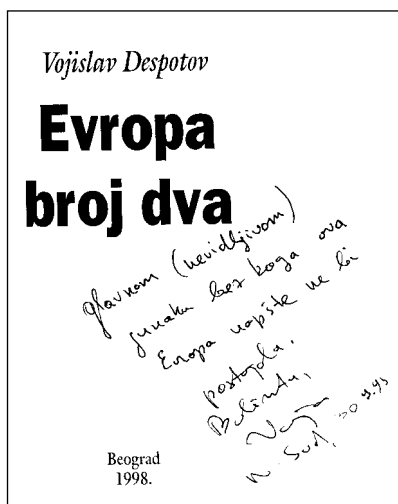 Vojislav Despotov
Evropa
broj dva
glavnom (nevidljivom)
junaku bez koga ova
Evropa uopšte ne bi
postojala.
Balintu,
Voja
N. Sad,
Beograd
1998.